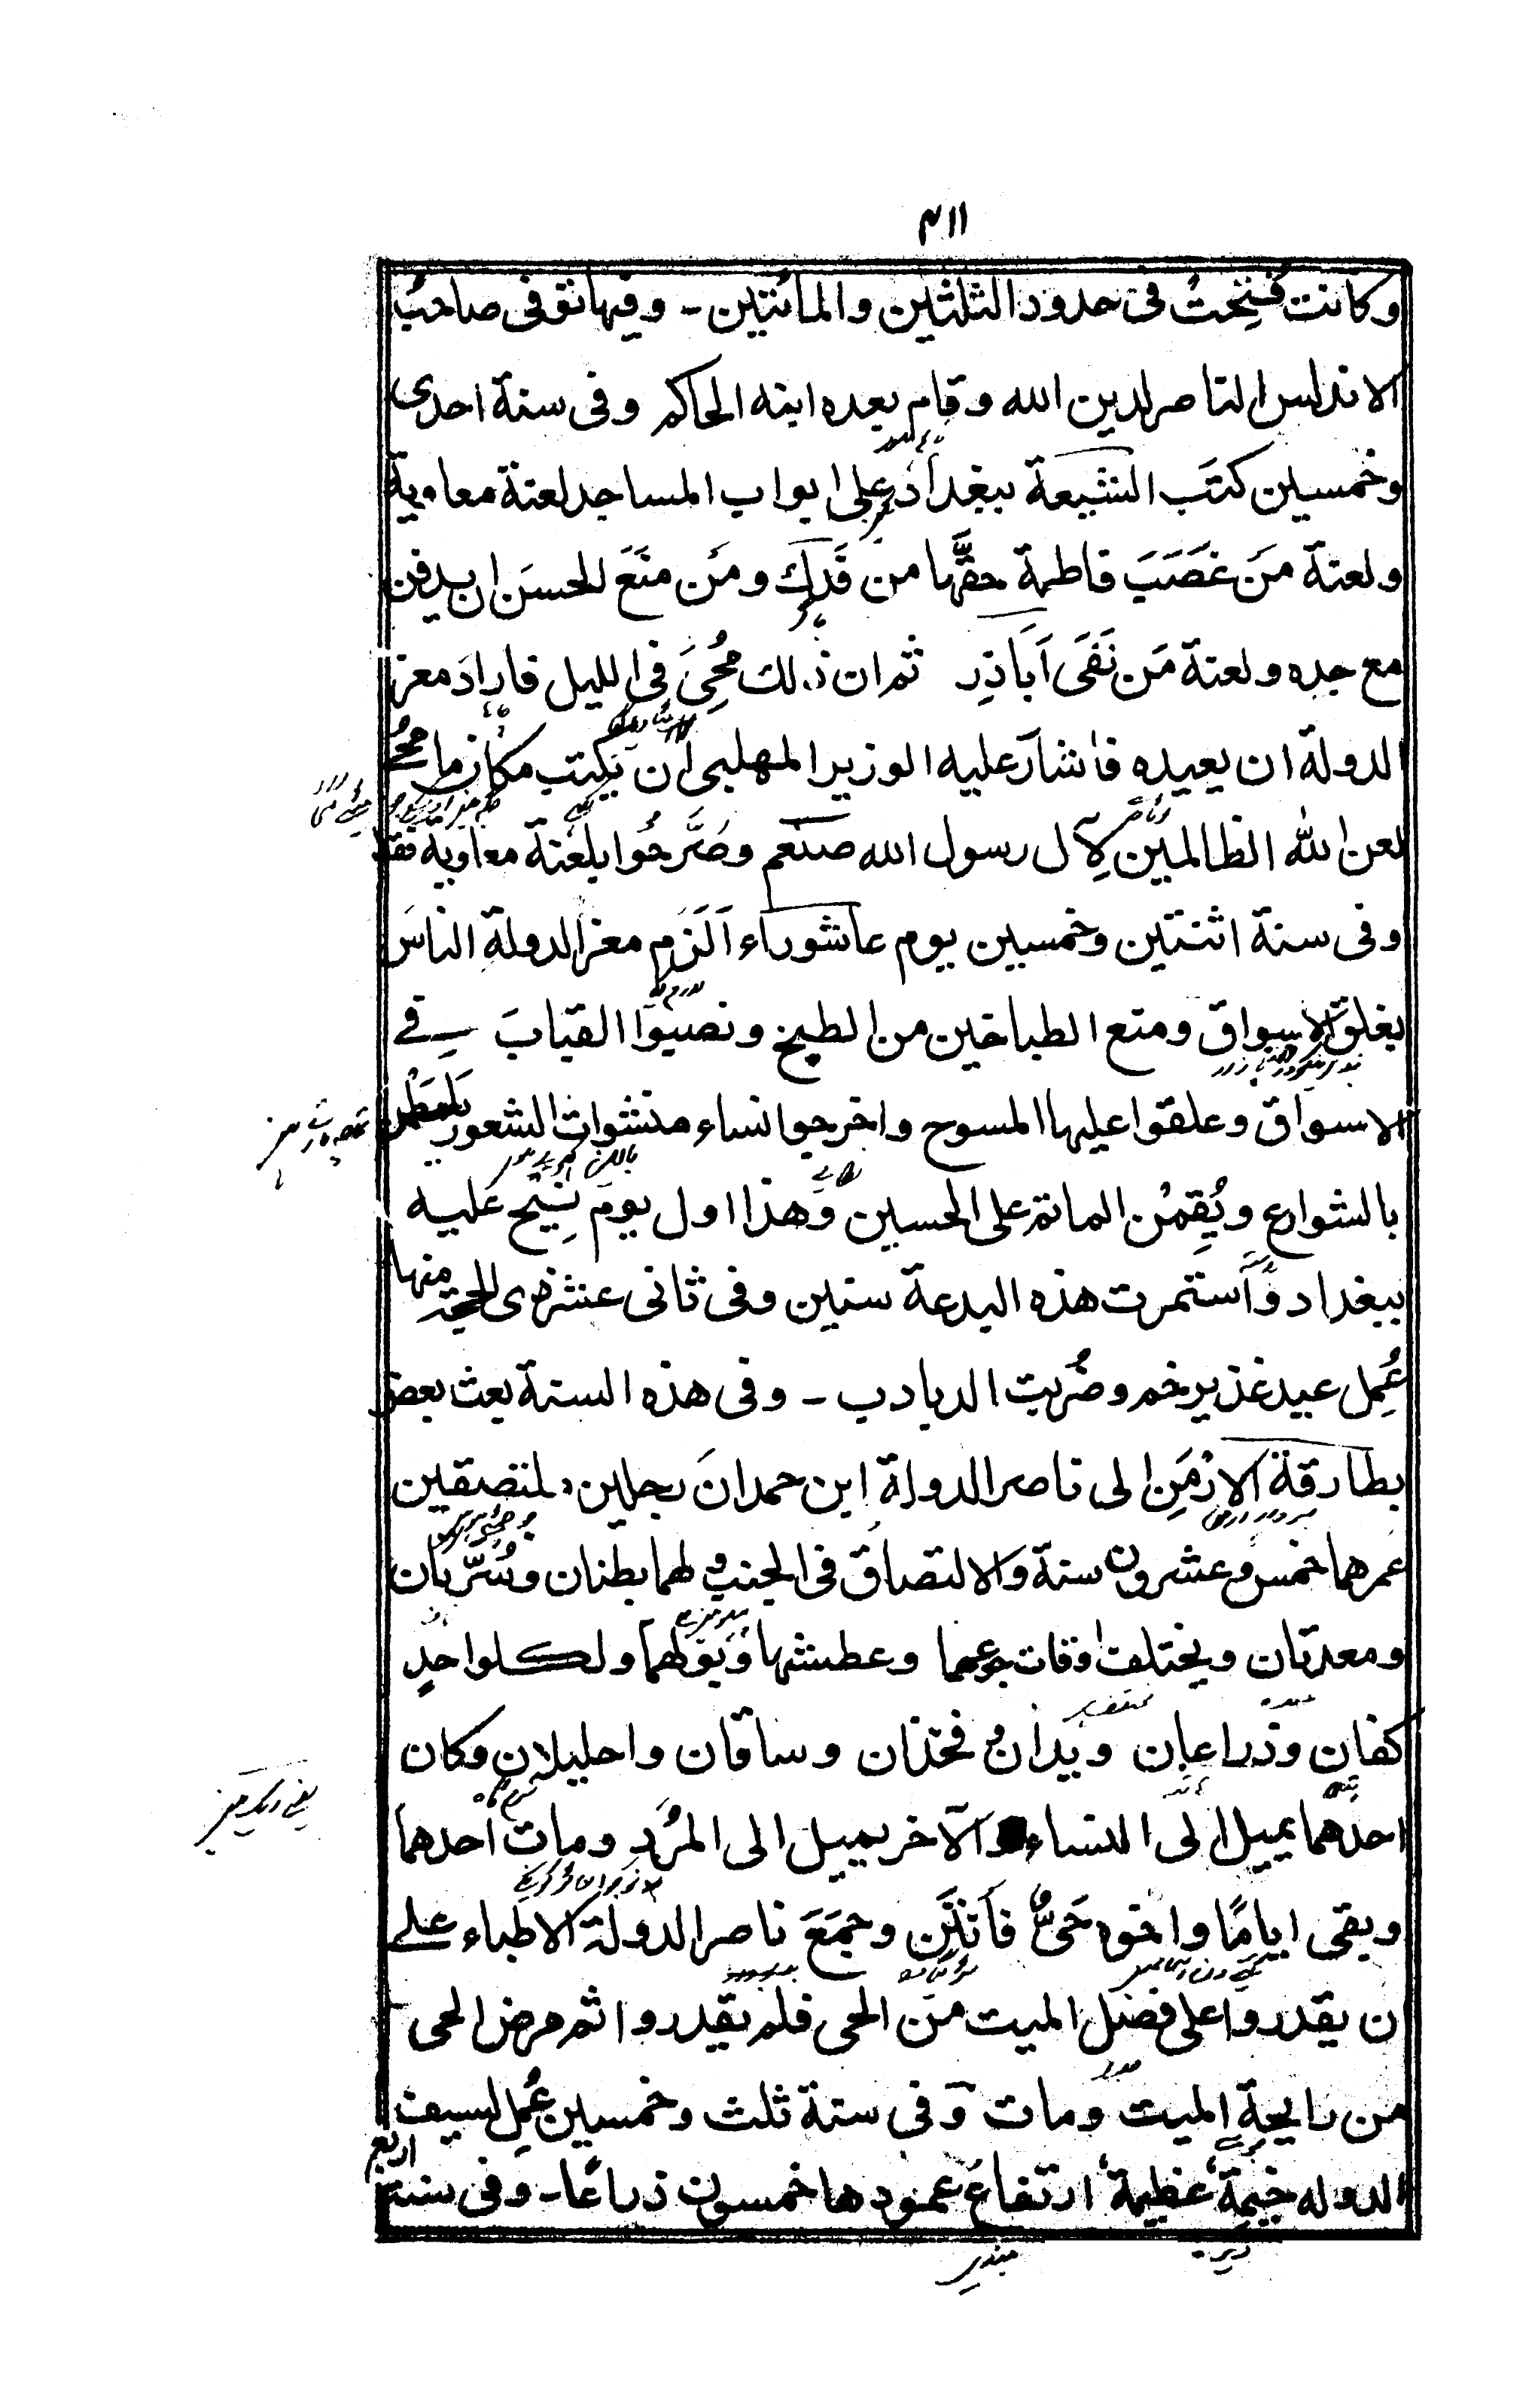 ٣١١
وكانت فُتِحتْ فى حدود الثلثين والمائتين - وفيها توفى صاحبُ
الاندلس الناصر لدين الله وقام بعده ابنه الحاكم وفى سنة احدى
وخمسين كتَب الشيعة ببغداد على ابواب المساجد لعنة معاوية
ولعنة مَن غصَبَ فاطمة حقَّها من فَدك ومَن منَعَ الحسَن ان يدفن
مع جده ولعنة مَن نَفَى اَباذِر ثم ان ذلك مُحِىَ فى الليل فاراد معز
الدولة ان يعيده فاشار عليه الوزير المهلبى ان يكتب مكان ما مُحى
لعن الله الظالمين لِآل رسول الله صلعم وصَرَّحُوا بلعنة معاوية فقط
وفى سنة اثنتين وخمسين يوم عاشوراء اَلزَم معز الدولة الناسَ
بغلق الاسواق ومنع الطباخين من الطبخ ونصبوا القبابَ فى
الاسواق وعلقوا عليها المسوح واخرجوا نساء منشوات الشعور يَلطِمْن
بالشوارع ويُقِمْن الماتم على الحسين وهذا اول يوم نِيح عليه
ببغداد واستمرت هذه البدعة سنين وفى ثانى عشر ذى الحجة منها
عُمِل عيد غذير خم وضُربت الدبادب - وفى هذه السنة بعث بعض
بطارقة الارْمَنِ الى ناصر الدولة ابن حمدانَ رجلين ملتصقين
عمرهما خمس وعشرون سنة والالتصاق فى الجنب ولهما بطنان وسُرّتان
ومعدتان ويختلف اوقات جوعهما وعطشهما وبولهما ولكل واحدٍ
كفان وذراعان ويدان و فخذان وساقان واحليلان وكان
احدهما يميل الى النساء والآخر يميل الى المرُد ومات احدهما
وبقى ايامًا واخوه حَىٌّ فاَنتَن وجمَعَ ناصر الدولة الاطباء على
ن يقدروا على فصل الميت من الحى فلم يقدروا ثم مرض الحى
من رايحةِ الميت ومات وفى سنة ثلث وخمسين عُمِل لسيف
الدوله خيمة عظيمة ارتفاع عمودها خمسون ذراعًا - وفى سنة اربع